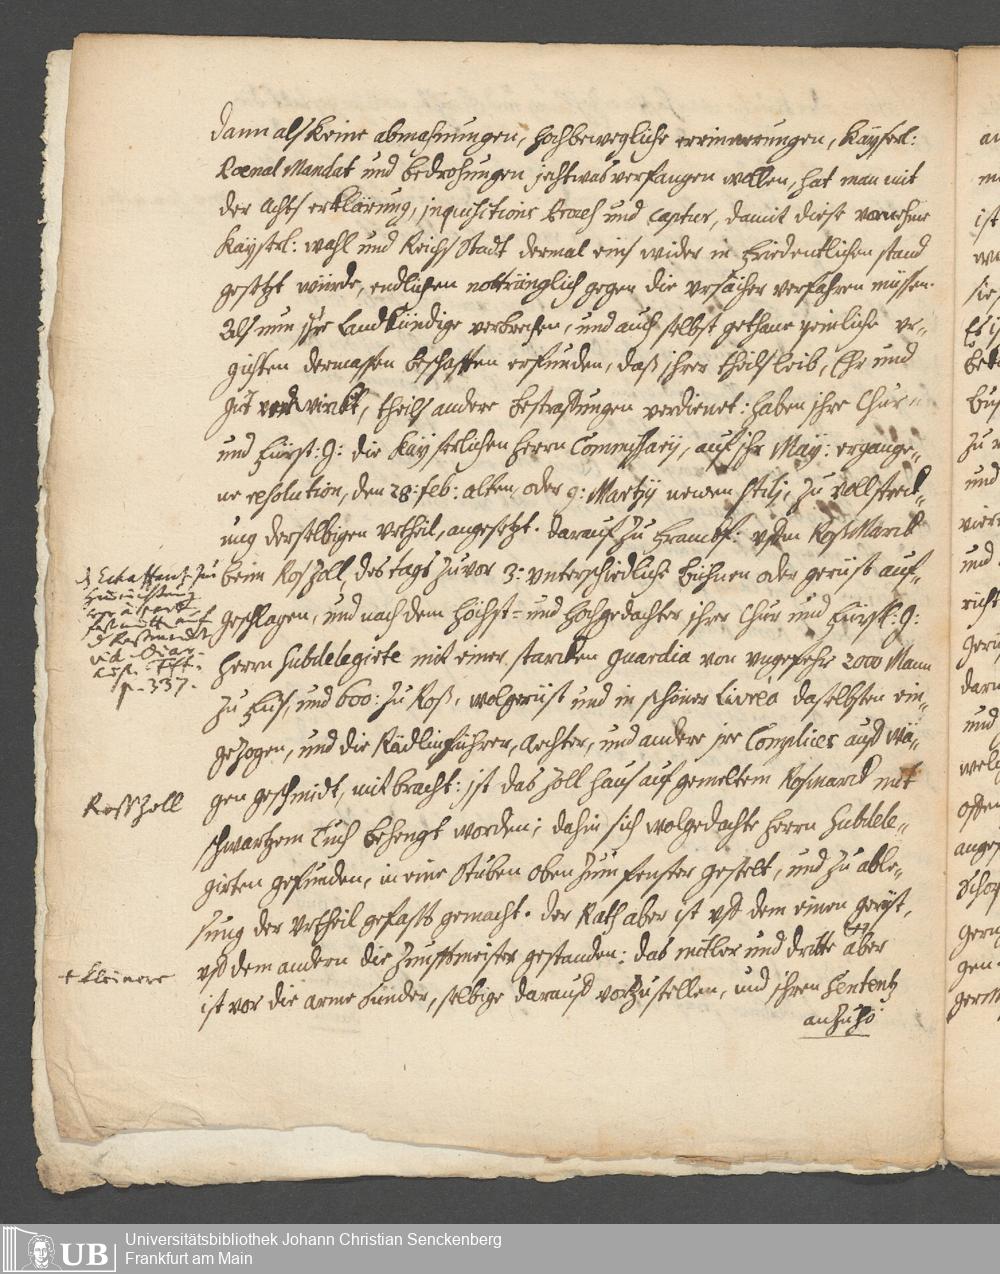 dann als keine abmahnungen, hochbewegliche errinnerungen, Kayserl:
Poenal Mandat und bedrohungen ichtwas verfangen wollen, hat man mit
der Achts erklärung, inquisitions Proceß und Captur, damit diese vornehme
Kayserl: wahl und Reichs Stadt dermal eins wider in friedentlichen stand
gesetzt würde, endlichen nottränglich gegen die ursächer verfahren müssen.
Als nun ihre Landkündige verbrechen, und auch selbst gethane peinliche ur-
gichten dermassen beschaffen erfunden, daß ihrer theils Leib, Ehr und
gut verwirckt, theils andere bestraffungen verdienet: haben ihre Chur
und Fürst: G: die Kayserlichen Herrn Commissarii, auf Ihr May: ergange-
ne resolution, den 28: feb: alten, oder 9: Martij newen stili, zu vollstreck-
ung derselbigen Urtheil, angesetzt. Darauf zu Franckf: ufm Roß Marck
beim Roszoll, des tags zuvor 3: unterschiedliche bühnen oder gerüst auf-
geschlagen, und nach dem höchst- und hochgedachter ihrer Chur und Fürstl: G:
Herrn Subdelegirte mit einer starcken guardia von ungefehr 2000 Mann
zu Fuß, und 600: zu Roß, wolgerüst und in schöner Liverea daselbsten ein-
gezogen, und die Rädlinführer, Aechter, und andere ire Complices auf Wä-
gen geschmidt, mitbracht: ist das Zoll Haus auf gemeltem Rosmarck mit
schwartzem Tuch behengt worden; dahin sich wolgedachte Herrn Subdele-
girten gefunden, in eine Stuben oben zum fenster gestelt, und zu able-
sung der Urtheil gefast gemacht. Der Rath aber ist uf dem einen gerüst,
uf dem andern die Zunftmeister gestanden: das mitler und dritte aber
ist vor die arme Sünder, selbige darauf vorzustellen, und ihren Sententz
anzuhö
p. 337.
RossZoll
+ kleinere
Universitätsbibliothek Johann Christian Senckenberg
UB Frankfurt am Main